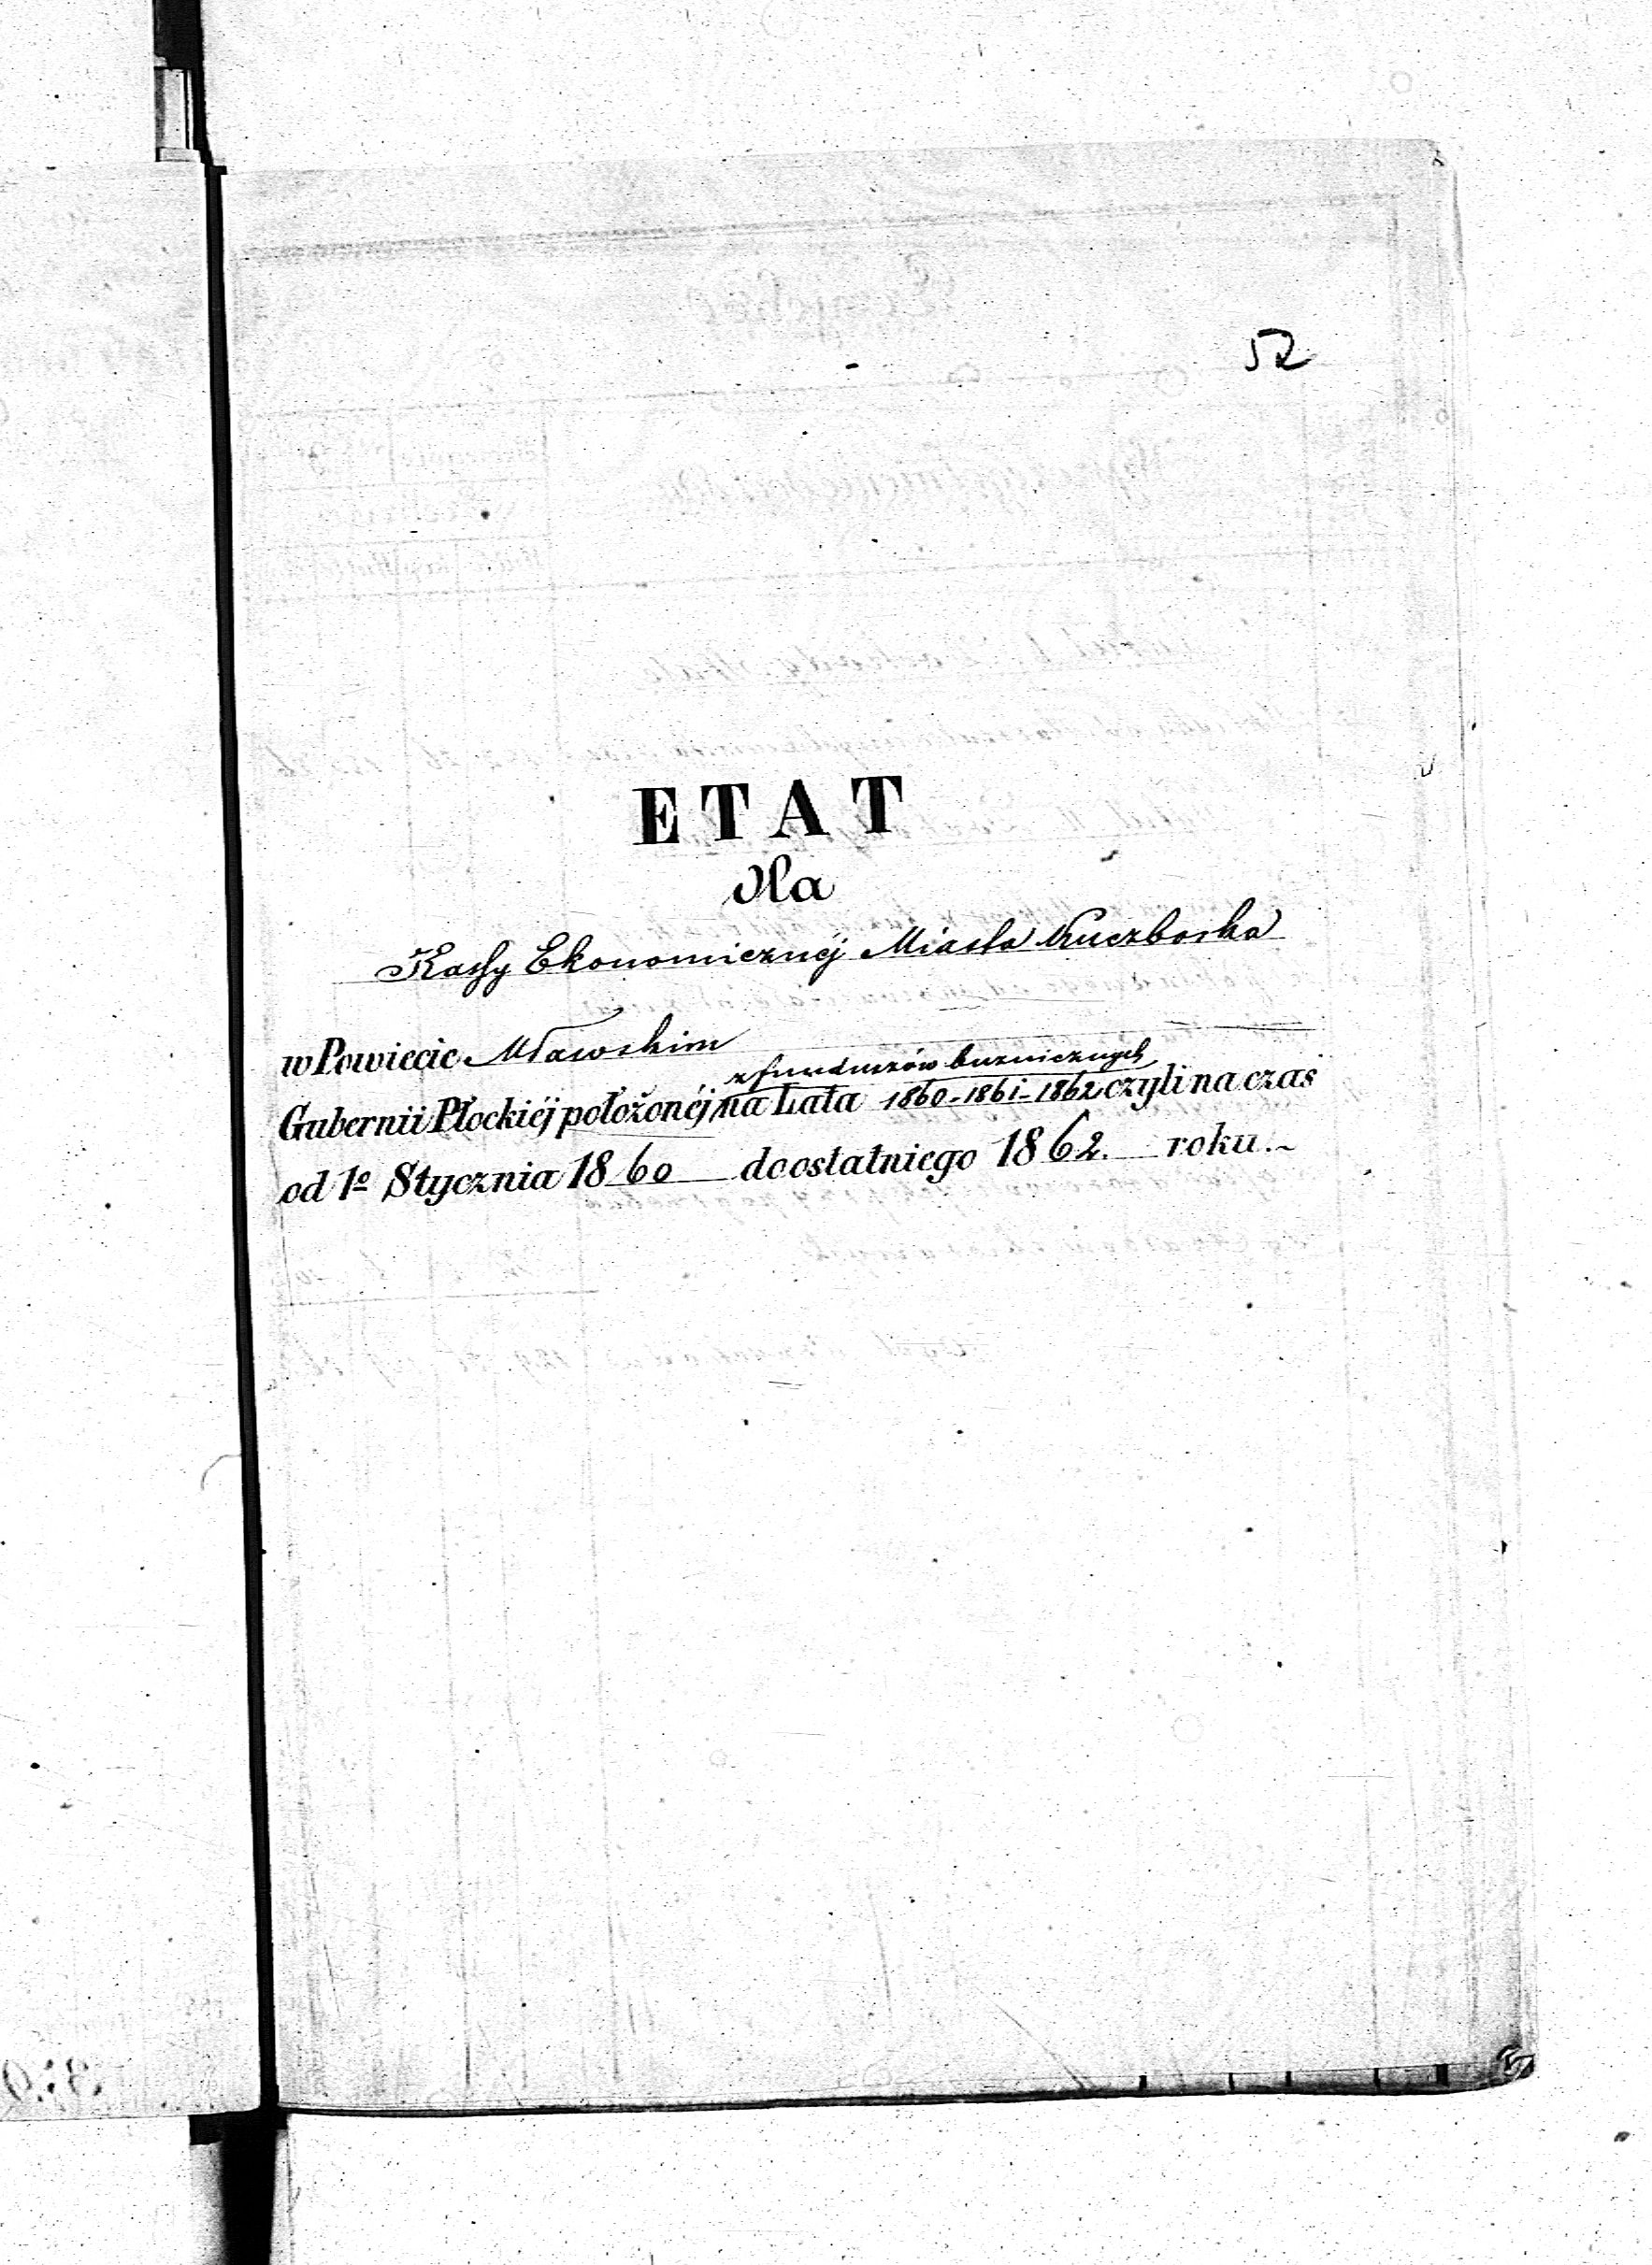 52
ETAT
dla
Kassy Ekonomicznéj Miasta Kuczborka
w Powiecie Mławskim
z funduszów bużnicznych
Gubernii Płockiéj położonéj na Lata 1860-1861-1862 czyli na czas
od 1º Stycznia 1860 do ostatniego 1862. roku.~